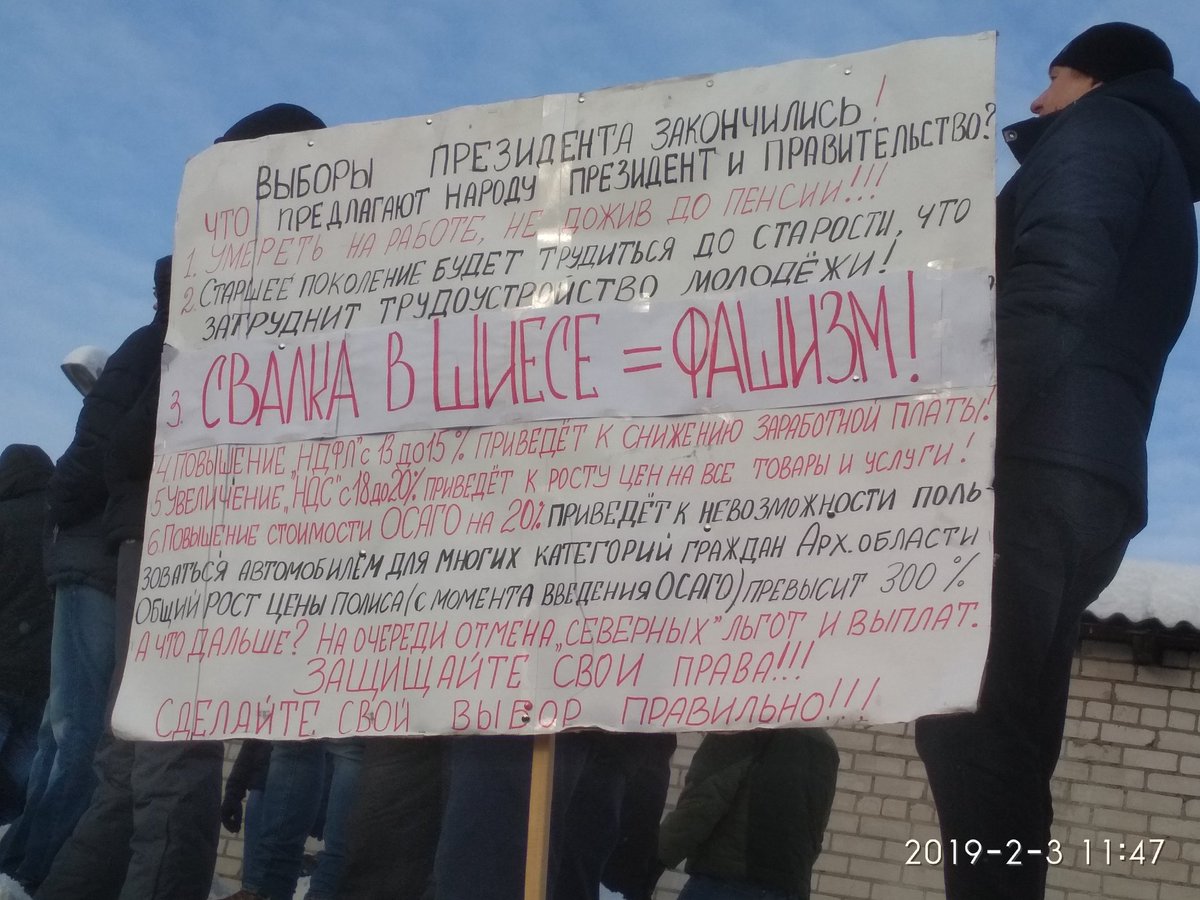 ВЫБОРЫ ПРЕЗИДЕНТА ЗАКОНЧИЛИСЬ!
ЧТО ПРЕДЛАГАЮТ НАРОДУ ПРЕЗИДЕНТ И ПРАВИТЕЛЬСТВО?
1. УМЕРЕТЬ НА РАБОТЕ, НЕ ДОЖИВ ДО ПЕНСИИ!!!
2. СТАРШЕЕ ПОКОЛЕНИЕ БУДЕТ ТРУДИТЬСЯ ДО СТАРОСТИ, ЧТО
ЗАТРУДНИТ ТРУДОУСТРОЙСТВО МОЛОДЁЖИ!
3. СВАЛКА В ШИЕСЕ = ФАШИЗМ!
4 ПОВЫШЕНИЕ „НДФЛ" С 13 ДО 15% ПРИВЕДЁТ К СНИЖЕНИЮ ЗАРАБОТНОЙ ПЛАТЫ!
5 УВЕЛИЧЕНИЕ „НДС" С 18 ДО 20% ПРИВЕДЁТ К РОСТУ ЦЕН НА ВСЕ ТОВАРЫ И УСЛУГИ!
6. ПОВЫШЕНИЕ СТОИМОСТИ ОСАГО НА 20% ПРИВЕДЁТ К НЕВОЗМОЖНОСТИ ПОЛЬ-
ЗОВАТЬСЯ АВТОМОБИЛЕМ ДЛЯ МНОГИХ КАТЕГОРИЙ ГРАЖДАН АРХ. ОБЛАСТИ
ОБЩИЙ РОСТ ЦЕНЫ ПОЛИСА (С МОМЕНТА ВВЕДЕНИЯ ОСАГО) ПРЕВЫСИТ 300%
А ЧТО ДАЛЬШЕ? НА ОЧЕРЕДИ ОТМЕНА „СЕВЕРНЫХ" ЛЬГОТ И ВЫПЛАТ.
ЗАЩИЩАЙТЕ СВОИ ПРАВА!!!
СДЕЛАЙТЕ СВОЙ ВЫБОР ПРАВИЛЬНО!!!
2019-2-3 11:47